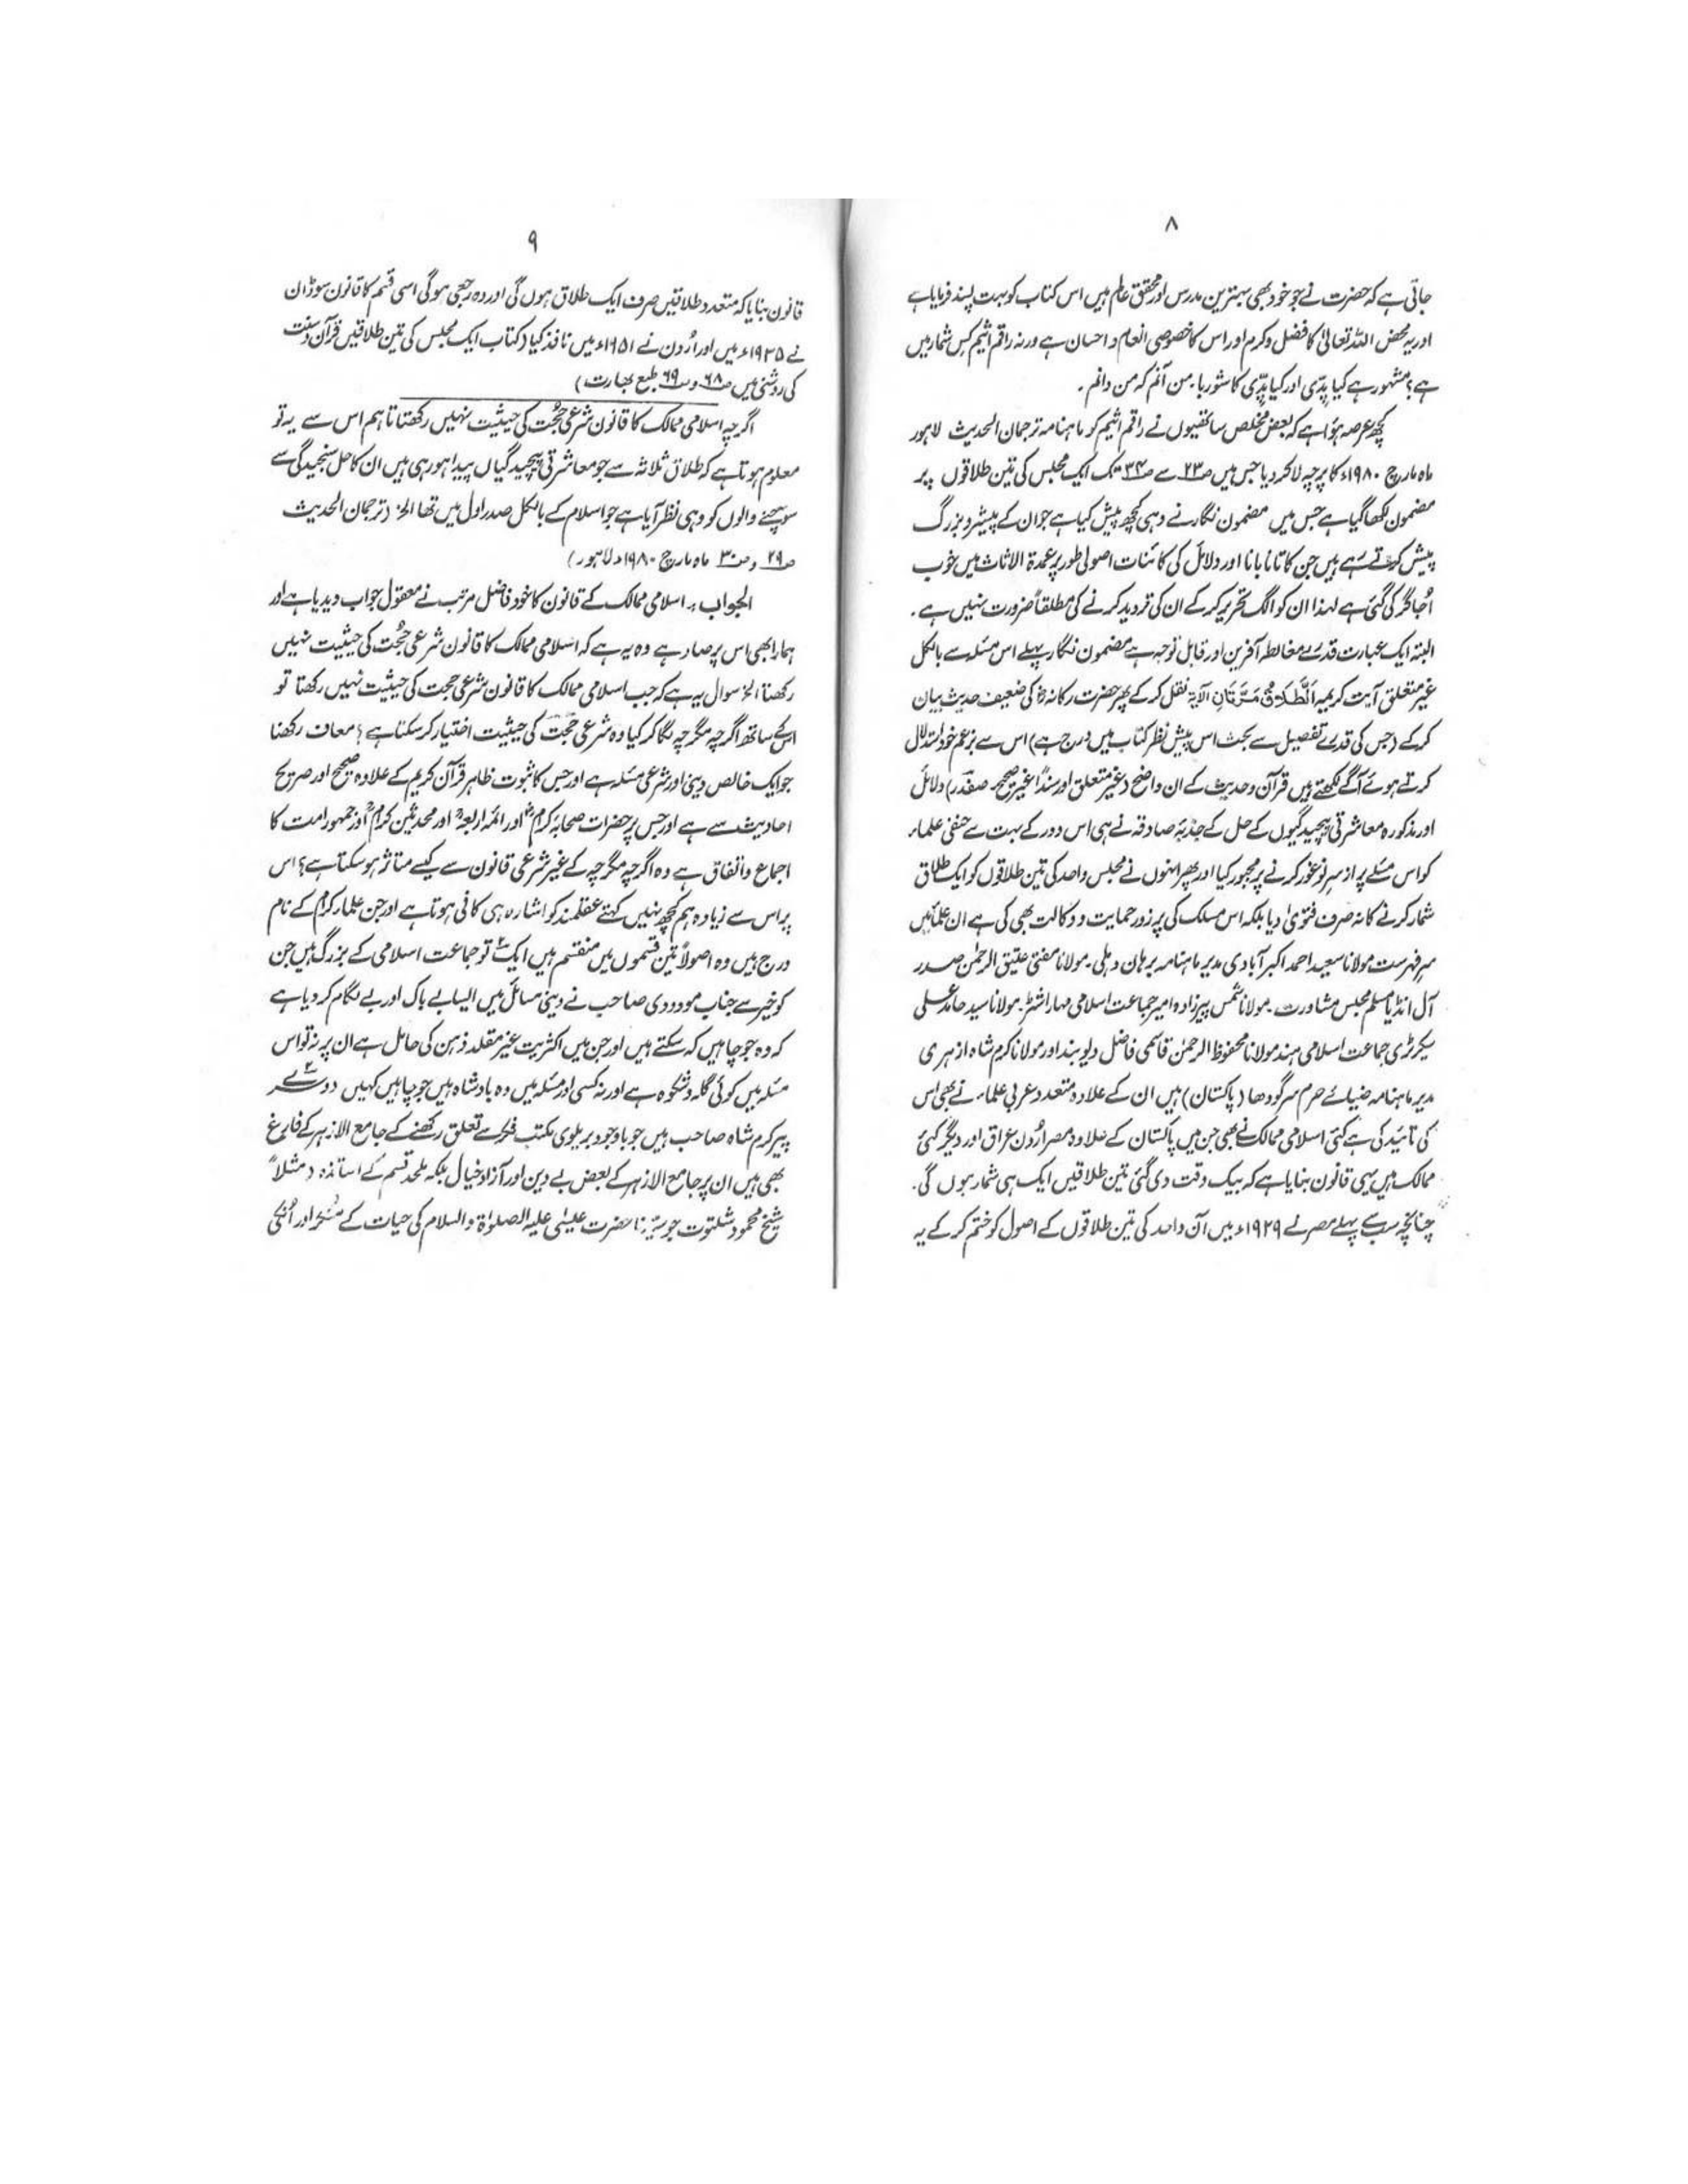 ۸
جاتی ہے کہ حضرت نے جو خود بھی بہترین مدرس اور محقق عالم ہیں اس کتاب کو بہت پسند فرمایا ہے
اور یہ محض اللہ تعالیٰ کا فضل وکرم اور اس کا خصوصی انعام و احسان ہے ورنہ راقم اثیم کس شمار میں
ہے؟ مشہور ہے کیا پدّی اور کیا پدّی کا شوربا۔ من آنم کہ من دانم ۔
کچھ عرصہ ہؤا ہے کہ بعض مخلص ساتھیوں نے راقم اثیم کو ماہنامہ ترجمان الحدیث لاہور
ماہ مارچ ۱۹۸۰ء کا پرچہ لا کر دیا جس میں صـ۲۳ سے صـ۳۴ تک ایک مجلس کی تین طلاقوں پر
مضمون لکھا گیا ہے جس میں مضمون نگار نے وہی کچھ پیش کیا ہے جو ان کے پیشرو بزرگ
پیش کرتے رہے ہیں جن کا تانا بانا اور دلائل کی کائنات اصولی طور پر عمدۃ الاثاث میں خوب
اُجاگر کی گئی ہے لہذا ان کو الگ تحریر کر کے ان کی تردید کرنے کی مطلقاً ضرورت نہیں ہے ۔
البتہ ایک عبارت قدرے مغالطہ آفرین اور قابل توجہ ہے مضمون نگار پہلے اس مسئلہ سے بالکل
غیر متعلق آیت کریمہ اَلطَّلَاقُ مَرَّتَانِ الآیۃ نقل کر کے پھر حضرت رکانہؓ کی ضعیف حدیث بیان
کر کے (جس کی قدرے تفصیل سے بحث اس پیش نظر کتاب میں درج ہے) اس سے بزعم خود استدلال
کرتے ہوئے آگے لکھتے ہیں قرآن و حدیث کے ان واضح (غیر متعلق اور سنداً غیر صحیح۔ صفدر) دلائل
اور مذکورہ معاشرتی پیچیدگیوں کے حل کے جذبۂ صادقہ نے ہی اس دور کے بہت سے حنفی علماء
کو اس مسئلے پر از سر نو غور کرنے پر مجبور کیا اور پھر انہوں نے مجلس واحد کی تین طلاقوں کو ایک طلاق
شمار کرنے کا نہ صرف فتویٰ دیا بلکہ اس مسلک کی پر زور حمایت و وکالت بھی کی ہے ان علماء میں
سر فہرست مولانا سعید احمد اکبر آبادی مدیر ماہنامہ برہان دہلی ۔ مولانا مفتی عتیق الرحمٰن صدر
آل انڈیا مسلم مجلس مشاورت ۔ مولانا شمس پیرزادہ امیر جماعت اسلامی مہاراشٹر۔ مولانا سید حامد علی
سیکرٹری جماعت اسلامی ہند مولانا محفوظ الرحمٰن قاسمی فاضل دیوبند اور مولانا کرم شاہ ازہری
مدیر ماہنامہ ضیائے حرم سرگودھا (پاکستان) ہیں ان کے علاوہ متعدد عربی علماء نے بھی اس
کی تائید کی ہے کئی اسلامی ممالک نے بھی جن میں پاکستان کے علاوہ مصر اُردن عراق اور دیگر کئی
ممالک میں یہی قانون بنایا ہے کہ بیک وقت دی گئی تین طلاقیں ایک ہی شمار ہوں گی۔
چنانچہ سب سے پہلے مصر نے ۱۹۲۹ء میں آن واحد کی تین طلاقوں کے اصول کو ختم کر کے یہ
۹
قانون بنایا کہ متعدد طلاقیں صرف ایک طلاق ہوں گی اور وہ رجعی ہوگی اسی قسم کا قانون سوڈان
نے ۱۹۳۵ء میں اور اُردن نے ۱۹۵۱ء میں نافذ کیا (کتاب ایک مجلس کی تین طلاقیں قرآن و سنت
کی روشنی میں صـ۶۸ و صـ۶۹ طبع بھارت)
اگرچہ اسلامی ممالک کا قانون شرعی حُجّت کی حیثیت نہیں رکھتا تاہم اس سے یہ تو
معلوم ہوتا ہے کہ طلاق ثلاثہ سے جو معاشرتی پیچیدگیاں پیدا ہو رہی ہیں ان کا حل سنجیدگی سے
سوچنے والوں کو وہی نظر آیا ہے جو اسلام کے بالکل صدر اول میں تھا الخ (ترجمان الحدیث
صـ۲۹ و صـ۳۰ ماہ مارچ ۱۹۸۰ء لاہور)
الجواب :۔ اسلامی ممالک کے قانون کا خود فاضل مرتّب نے معقول جواب دیدیا ہے اور
ہمارا بھی اس پر صاد ہے وہ یہ ہے کہ اسلامی ممالک کا قانون شرعی حُجّت کی حیثیت نہیں
رکھتا الخ سوال یہ ہے کہ جب اسلامی ممالک کا قانون شرعی حجت کی حیثیت نہیں رکھتا تو
اس کے ساتھ اگرچہ مگرچہ لگا کر کیا وہ شرعی حجّت کی حیثیت اختیار کر سکتا ہے؟ معاف رکھنا
جو ایک خالص دینی اور شرعی مسئلہ ہے اور جس کا ثبوت ظاہر قرآن کریم کے علاوہ صحیح اور صریح
احادیث سے ہے اور جس پر حضرات صحابہ کرامؓ اور ائمہ اربعہؒ اور محدثین کرامؒ اور جمہور امت کا
اجماع و اتفاق ہے وہ اگرچہ مگرچہ کے غیر شرعی قانون سے کیسے متاثر ہو سکتا ہے؟ اس
پر اس سے زیادہ ہم کچھ نہیں کہتے عقلمند کو اشارہ ہی کافی ہوتا ہے اور جن علماء کرام کے نام
درج ہیں وہ اصولاً تین قسموں میں منقسم ہیں ایک۱ تو جماعت اسلامی کے بزرگ ہیں جن
کو خیر سے جناب مودودی صاحب نے دینی مسائل میں ایسا بے باک اور بے لگام کر دیا ہے
کہ وہ جو چاہیں کہہ سکتے ہیں اور جن میں اکثریت غیر مقلد ذہن کی حامل ہے ان پر نہ تو اس
مسئلہ میں کوئی گلہ و شکوہ ہے اور نہ کسی اور مسئلہ میں وہ بادشاہ ہیں جو چاہیں کہیں دوسرے۲
پیر کرم شاہ صاحب ہیں جو باوجود بریلوی مکتب فکر سے تعلق رکھنے کے جامع الازہر کے فارغ
بھی ہیں ان پر جامع الازہر کے بعض بے دین اور آزاد خیال بلکہ ملحد قسم کے اساتذہ (مثلاً
شیخ محمود شلتوت جو سیّدنا حضرت عیسٰی علیہ الصلوٰۃ والسلام کی حیات کے منکر اور اُن کی